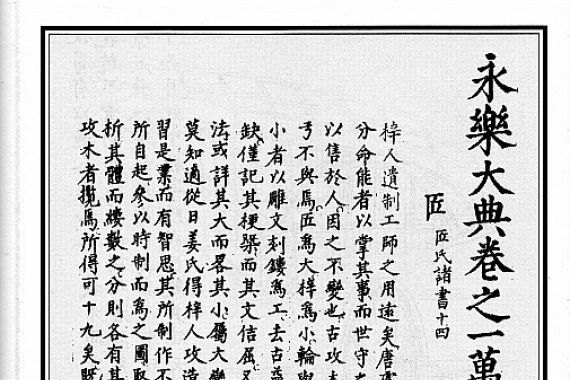 永樂大典卷之一萬
匠 匠氏諸書十四
梓人遺制工師之用遠矣唐虞
分命能者以掌其事而世守
以售於人因之不變也古攻木
丂不與焉匠為大梓為小輪輿
小者以雕文刻鏤為工去古益
缺僅記其梗槩而其文佶屈又
法或詳其大而畧其小屬大變
莫知適從日姜氏得梓人攻造
習是業而有智思其所制作不
所自起參以時制而為之圖取
析其體而縷數之分則各有其
攻木者攬焉所得可十九矣既